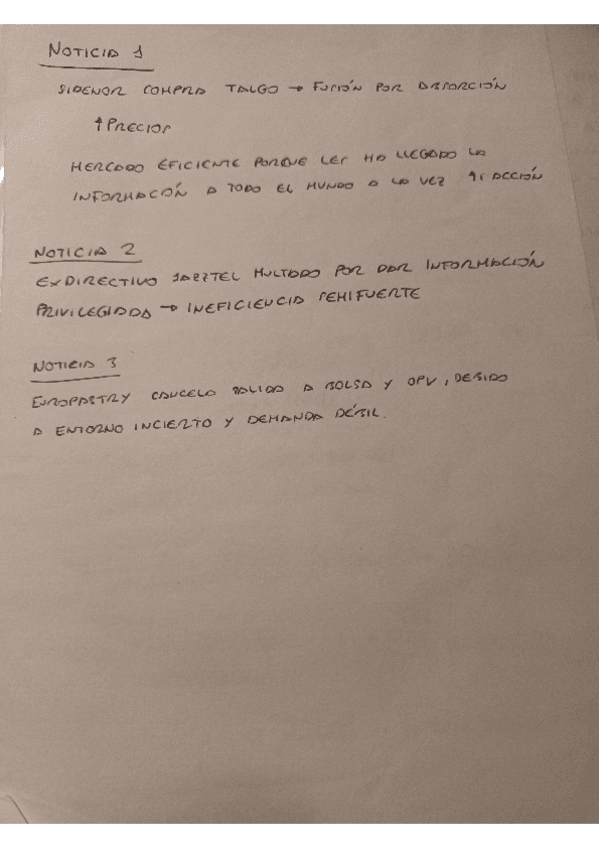 NOTICIA 1
SIDENOR COMPRA TALGO → FUSIÓN POR ABSORCIÓN
↑ PRECIOS
MERCADO EFICIENTE PORQUE LES HA LLEGADO LA
INFORMACIÓN A TODO EL MUNDO A LA VEZ ↑ ACCIÓN
NOTICIA 2
EXDIRECTIVO JAZZTEL MULTADO POR DAR INFORMACIÓN
PRIVILEGIADA → INEFICIENCIA SEMIFUERTE
NOTICIA 3
EUROPASTRY CANCELA SALIDA A BOLSA Y OPV, DEBIDO
A ENTORNO INCIERTO Y DEMANDA DÉBIL.